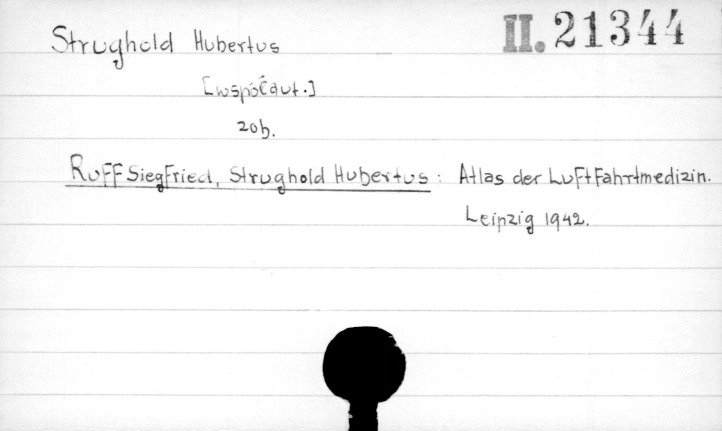 Strughold Hubertus
II. 21344
[współaut.]
zob.
Ruff Siegfried, Strughold Hubertus: Atlas der Luftfahrtmedizin.
Leipzig 1942.